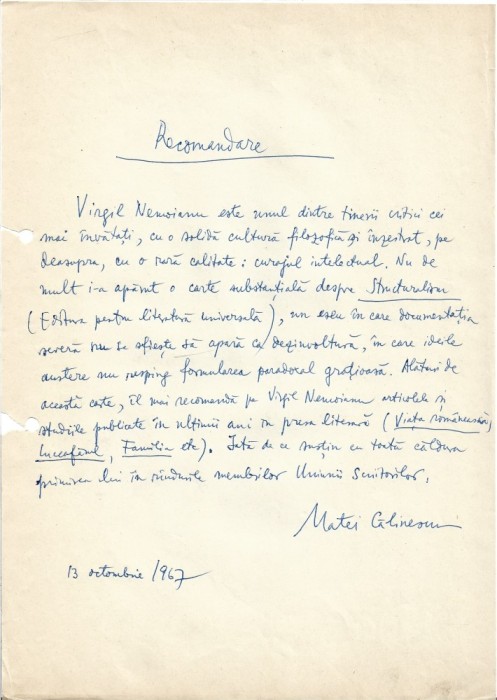 Recomandare
Virgil Nemoianu este unul dintre tinerii critici cei
mai învățați, cu o solidă cultură filozofică și înzestrat, pe
deasupra, cu o rară calitate: curajul intelectual. Nu de
mult i-a apărut o carte substanțială despre Structuralism
(Editura pentru literatură universală), un eseu în care documentația
severă nu se sfiește să apară cu dezinvoltură, în care ideile
austere nu resping formularea paradoxal grațioasă. Alături de
această carte, îl mai recomandă pe Virgil Nemoianu articolele și
studiile publicate în ultimii ani în presa literară (Viața românească,
Luceafărul, Familia etc). Iată de ce susțin cu toată căldura
primirea lui în rândurile membrilor Uniunii Scriitorilor.
Matei Călinescu
13 octombrie 1967